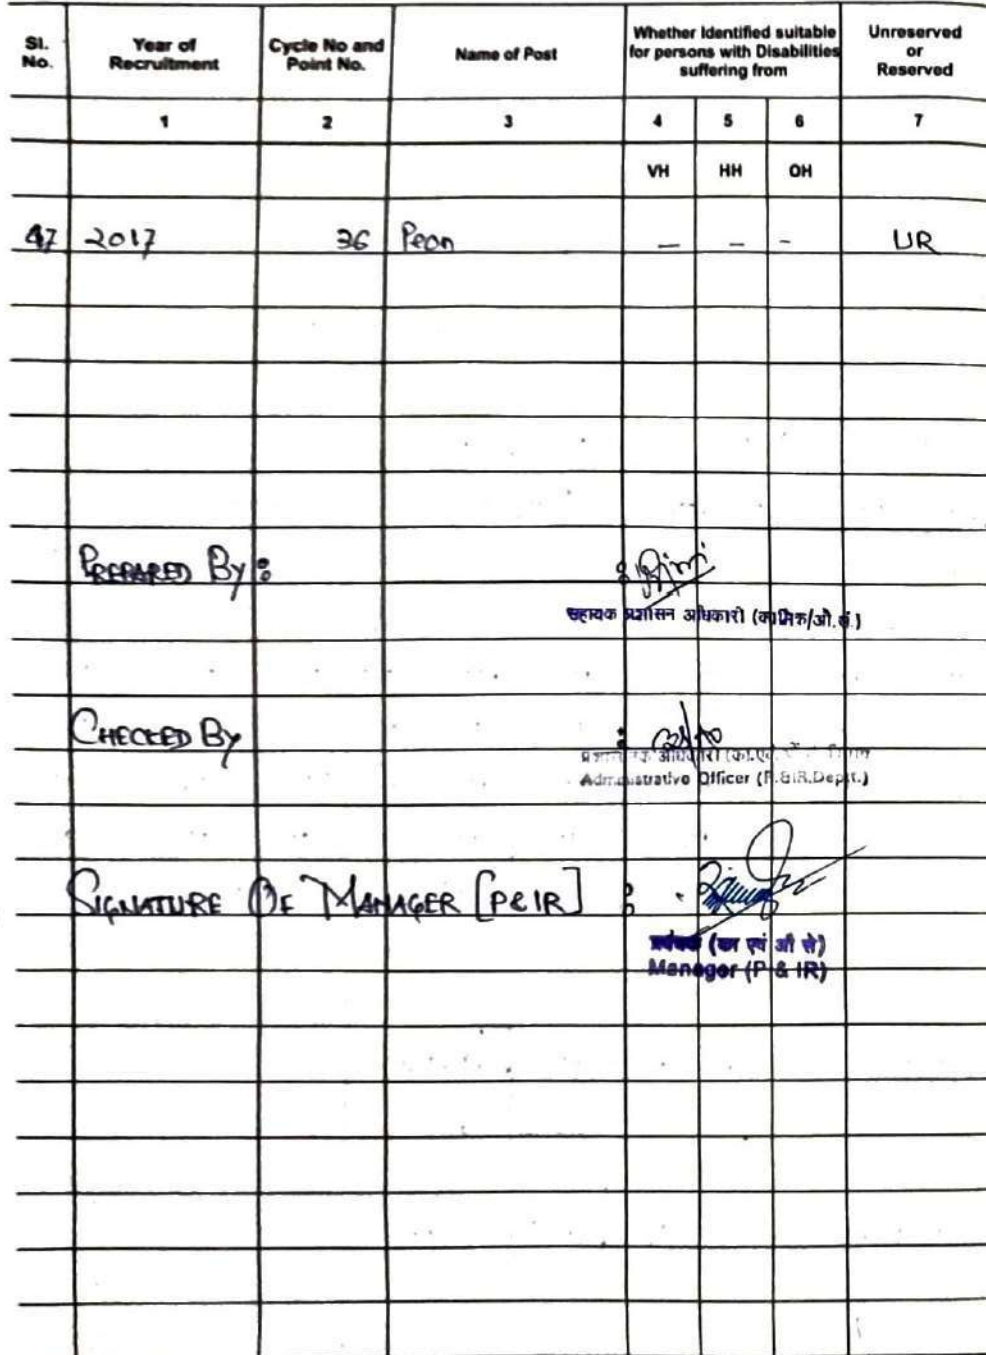 Sl. No. Year of Recruitment Cycle No and Point No. Name of Post Whether Identified suitable for persons with Disabilities suffering from Unreserved or Reserved
1 2 3 4 5 6 7
VH HH OH
47 2017 36 Peon — – - UR
PREPARED By :
सहायक प्रशासन अधिकारी (कार्मिक/औ.सं.)
CHECKED By :
अधिकारी (का.एवं
Administrative Officer (P.&IR.Deptt.)
SIGNATURE OF MANAGER [P&IR] :
प्रबंधक (का एवं औ से)
Manager (P & IR)